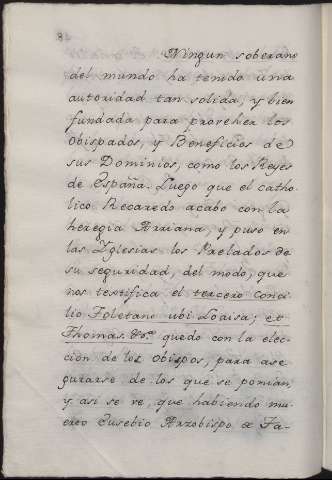 Ningun soberano
del mundo ha tenido una
autoridad tan solida, y bien
fundada para proveher los
Obispados, y Beneficios de
sus Dominios, como los Reyes
de España. Luego que el catho-
lico Recaredo acabo con la
heregia Arriana, y puso en
las Yglesias los Prelados de
su seguridad, del modo, que
nos testifica el tercero Conci-
lio Toletano ubi Loaisa; et
Thomas. &c.ª quedo con la elec-
cion de los Obispos, para ase-
gurarse de los que se ponian,
y asi se ve, que habiendo mu-
erto Eusebio Arzobispo de Ta-